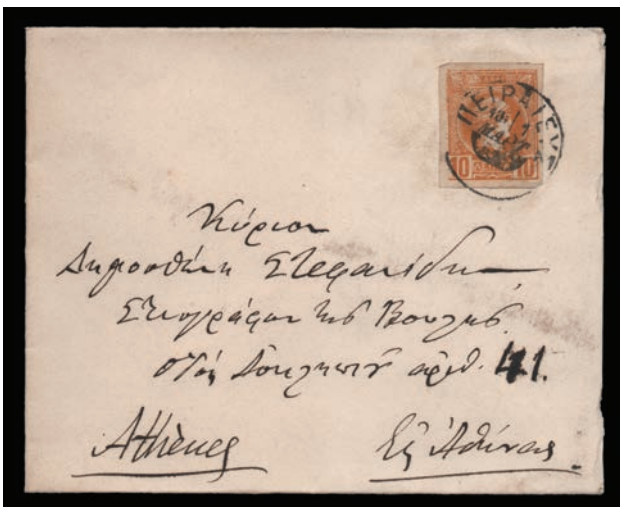 ΠΕΙΡΑΙΕΥΣ
ΜΑΡΤ
10 10
Κύριον
Δημοσθένη Στεφανίδην
Στενογράφον της Βουλής.
οδός Ασκληπιού αριθ. 41.
Athènes Εἰς Ἀθήνας.